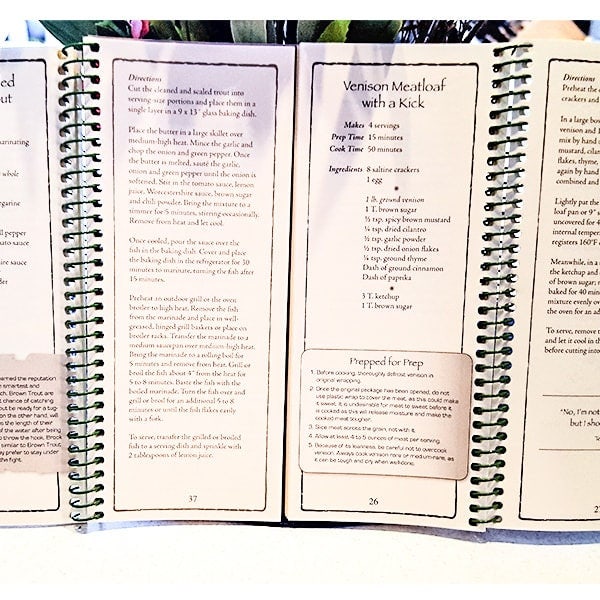 ed
out
arinating
whole
argarine
ll pepper
mato sauce
hire sauce
der
earned the reputation
e smartest and
ch. Brown Trout are
t chance of catching
out be ready for a tug-
on the other hand, will
es the length of their
of the water after being
to throw the hook. Brook
similar to Brown Trout,
ey prefer to stay under
the fight.
Directions
Cut the cleaned and scaled trout into
serving-size portions and place them in a
single layer in a 9 x 13" glass baking dish.
Place the butter in a large skillet over
medium-high heat. Mince the garlic and
chop the onion and green pepper. Once
the butter is melted, sauté the garlic,
onion and green pepper until the onion is
softened. Stir in the tomato sauce, lemon
juice, Worcestershire sauce, brown sugar
and chili powder. Bring the mixture to a
simmer for 5 minutes, stirring occasionally.
Remove from heat and let cool.
Once cooled, pour the sauce over the
fish in the baking dish. Cover and place
the baking dish in the refrigerator for 30
minutes to marinate, turning the fish after
15 minutes.
Preheat an outdoor grill or the oven
broiler to high heat. Remove the fish
from the marinade and place in well-
greased, hinged grill baskets or place on
broiler racks. Transfer the marinade to a
medium saucepan over medium-high heat.
Bring the marinade to a rolling boil for
5 minutes and remove from heat. Grill or
broil the fish about 4" from the heat for
5 to 8 minutes. Baste the fish with the
boiled marinade. Turn the fish over and
grill or broil for an additional 5 to 8
minutes or until the fish flakes easily
with a fork.
To serve, transfer the grilled or broiled
fish to a serving dish and sprinkle with
2 tablespoons of lemon juice.
37
Venison Meatloaf
with a Kick
Makes 4 servings
Prep Time 15 minutes
Cook Time 50 minutes
Ingredients 8 saltine crackers
1 egg
1 lb. ground venison
1 T. brown sugar
½ tsp. spicy brown mustard
¼ tsp. dried cilantro
½ tsp. garlic powder
½ tsp. dried onion flakes
¼ tsp. ground thyme
Dash of ground cinnamon
Dash of paprika
3 T. ketchup
1 T. brown sugar
Prepped for Prep
1. Before cooking, thoroughly defrost venison in
original wrapping.
2. Once the original package has been opened, do not
use plastic wrap to cover the meat, as this could make
it sweat. It is undesirable for meat to sweat before it
is cooked as this will release moisture and make the
cooked meat tougher.
3. Slice meat across the grain, not with it.
4. Allow at least 4 to 5 ounces of meat per serving.
5. Because of its leanness, be careful not to overcook
venison. Always cook venison rare or medium-rare, as
it can be tough and dry when well-done.
26
Directions
Preheat the
crackers and
In a large bo
venison and 1
mix by hand
mustard, cila
flakes, thyme,
again by hand
combined and
Lightly pat the
loaf pan or 9"
uncovered for 4
internal temper
registers 160°F
Meanwhile, in a
the ketchup and
of brown sugar;
baked for 40 min
mixture evenly ov
the oven for an ad
To serve, remove t
and let it cool in th
before cutting into
"No, I'm not
but I sho
27